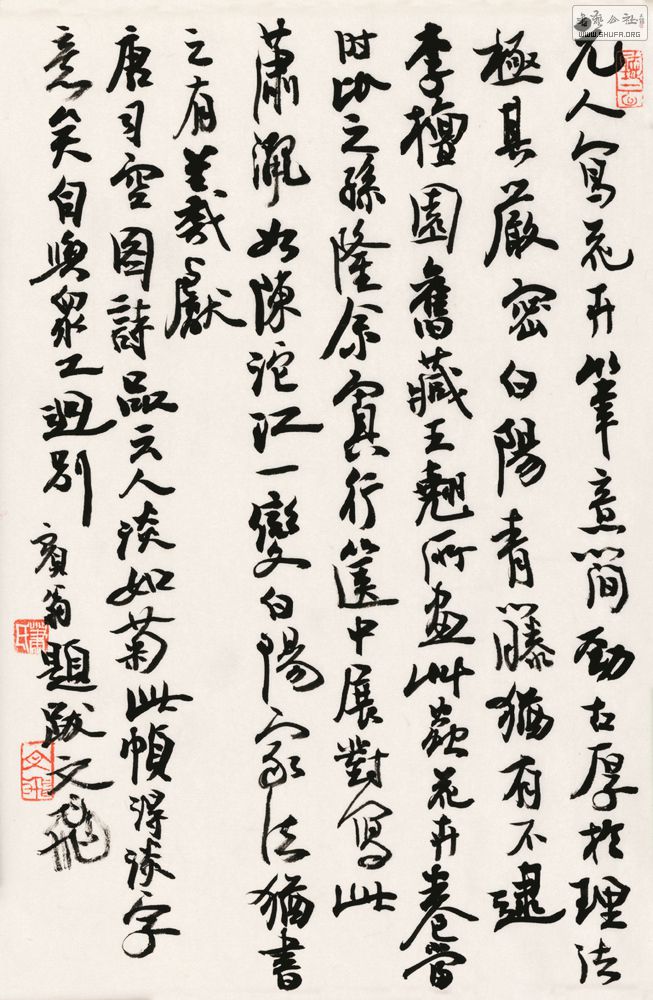 元人寫花卉筆意簡勁古厚於理法
極其嚴密白陽青藤猶有不逮
李檀園舊藏王翹所畫艸蟲花卉卷當
時比之孫隆余寘行篋中展對寫此
蕭灑如陳沱江一變白陽家法猶書
之有羲獻
唐司空圖詩品云人淡如菊此幀得淡字
意矣自與眾工迥別
賓翁題跋文飛
WWW.SHUFA.ORG